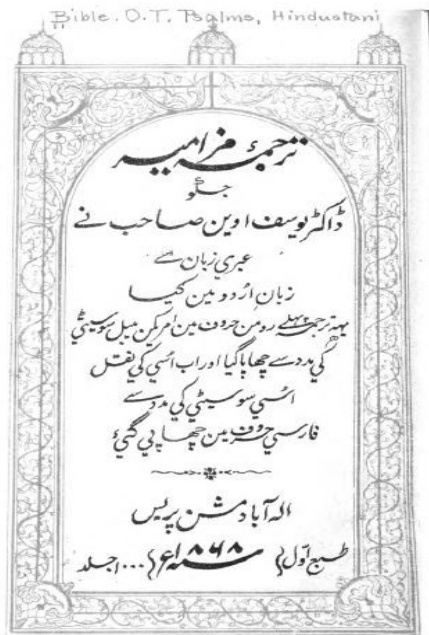 Bible. O.T. Psalms, Hindustani
ترجمۂ مزامیر
جسکو
ڈاکٹر یوسف اوین صاحب نے
عبری زبان سے
زبان اُردو مین کیا
یہہ ترجمہ پہلے رومن حروف مین امریکن میل سوسیٹی
کی مدد سے چھاپا گیا اور اب اُسی کی نقل
اُسی سوسیٹی کی مدد سے
فارسی حروف مین چھاپی گئی
الہ آباد مشن پریس
طبع اوّل سنہ ۱۸۶۸ع ۱۰۰۰ جلد